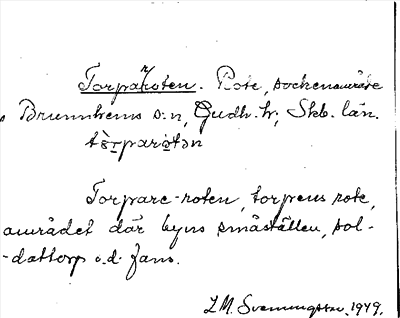 Torparroten. Rote, sockenområde
Brunnhems s:n, Gudh. h:, Skb. län.
Torpare-roten, torpens rote,
området där byns småställen, sol-
-dattorp o.d. fans.
L.M. Svenungsson. 1949.